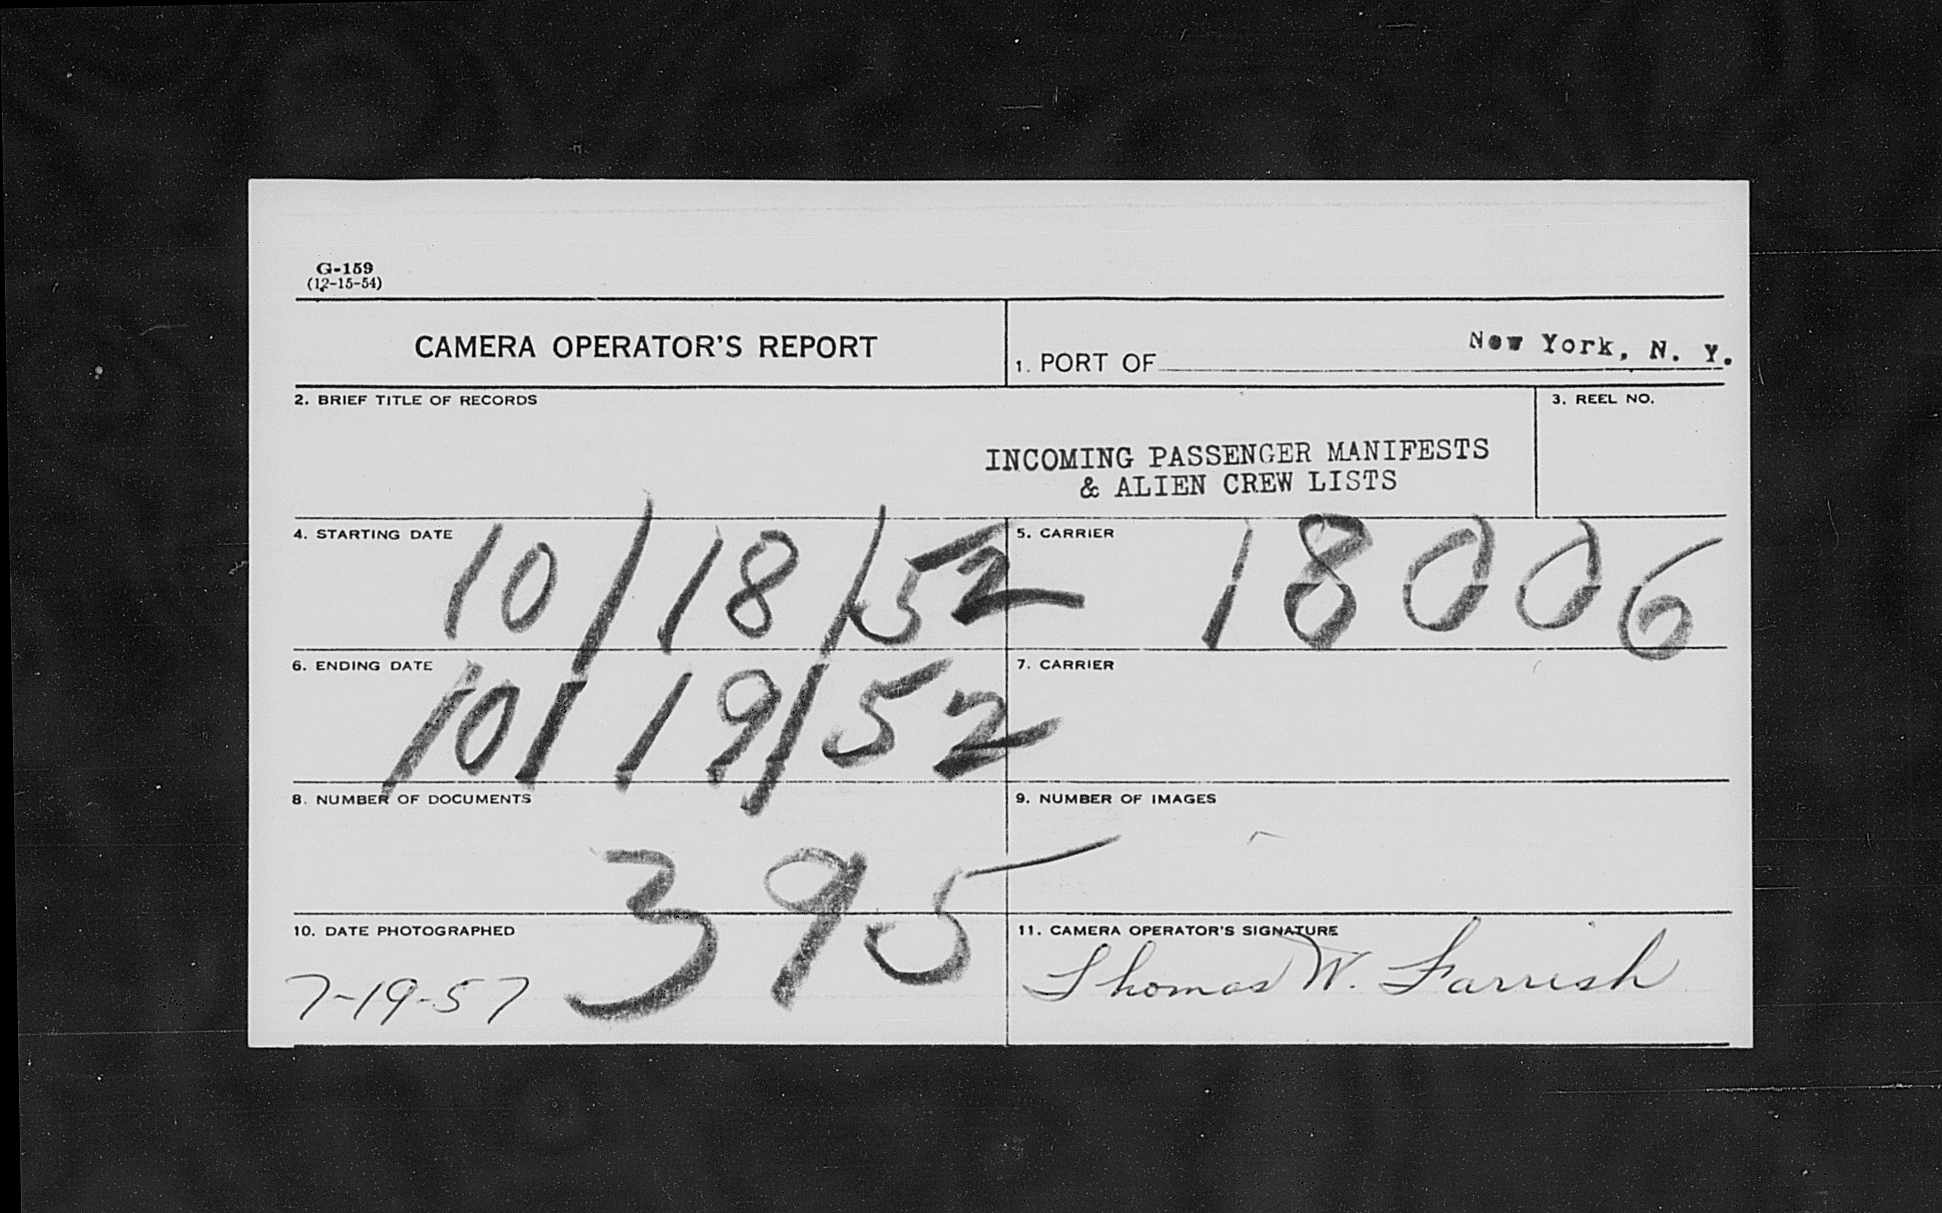 G-159
(12-15-54)
CAMERA OPERATOR'S REPORT
1. PORT OF New York, N. Y.
2. BRIEF TITLE OF RECORDS
INCOMING PASSENGER MANIFESTS
& ALIEN CREW LISTS
3. REEL NO.
4. STARTING DATE 10/18/52
5. CARRIER 18006
6. ENDING DATE 10/19/52
7. CARRIER
8. NUMBER OF DOCUMENTS 395
9. NUMBER OF IMAGES
10. DATE PHOTOGRAPHED 7-19-57
11. CAMERA OPERATOR'S SIGNATURE
Thomas W. Farrish